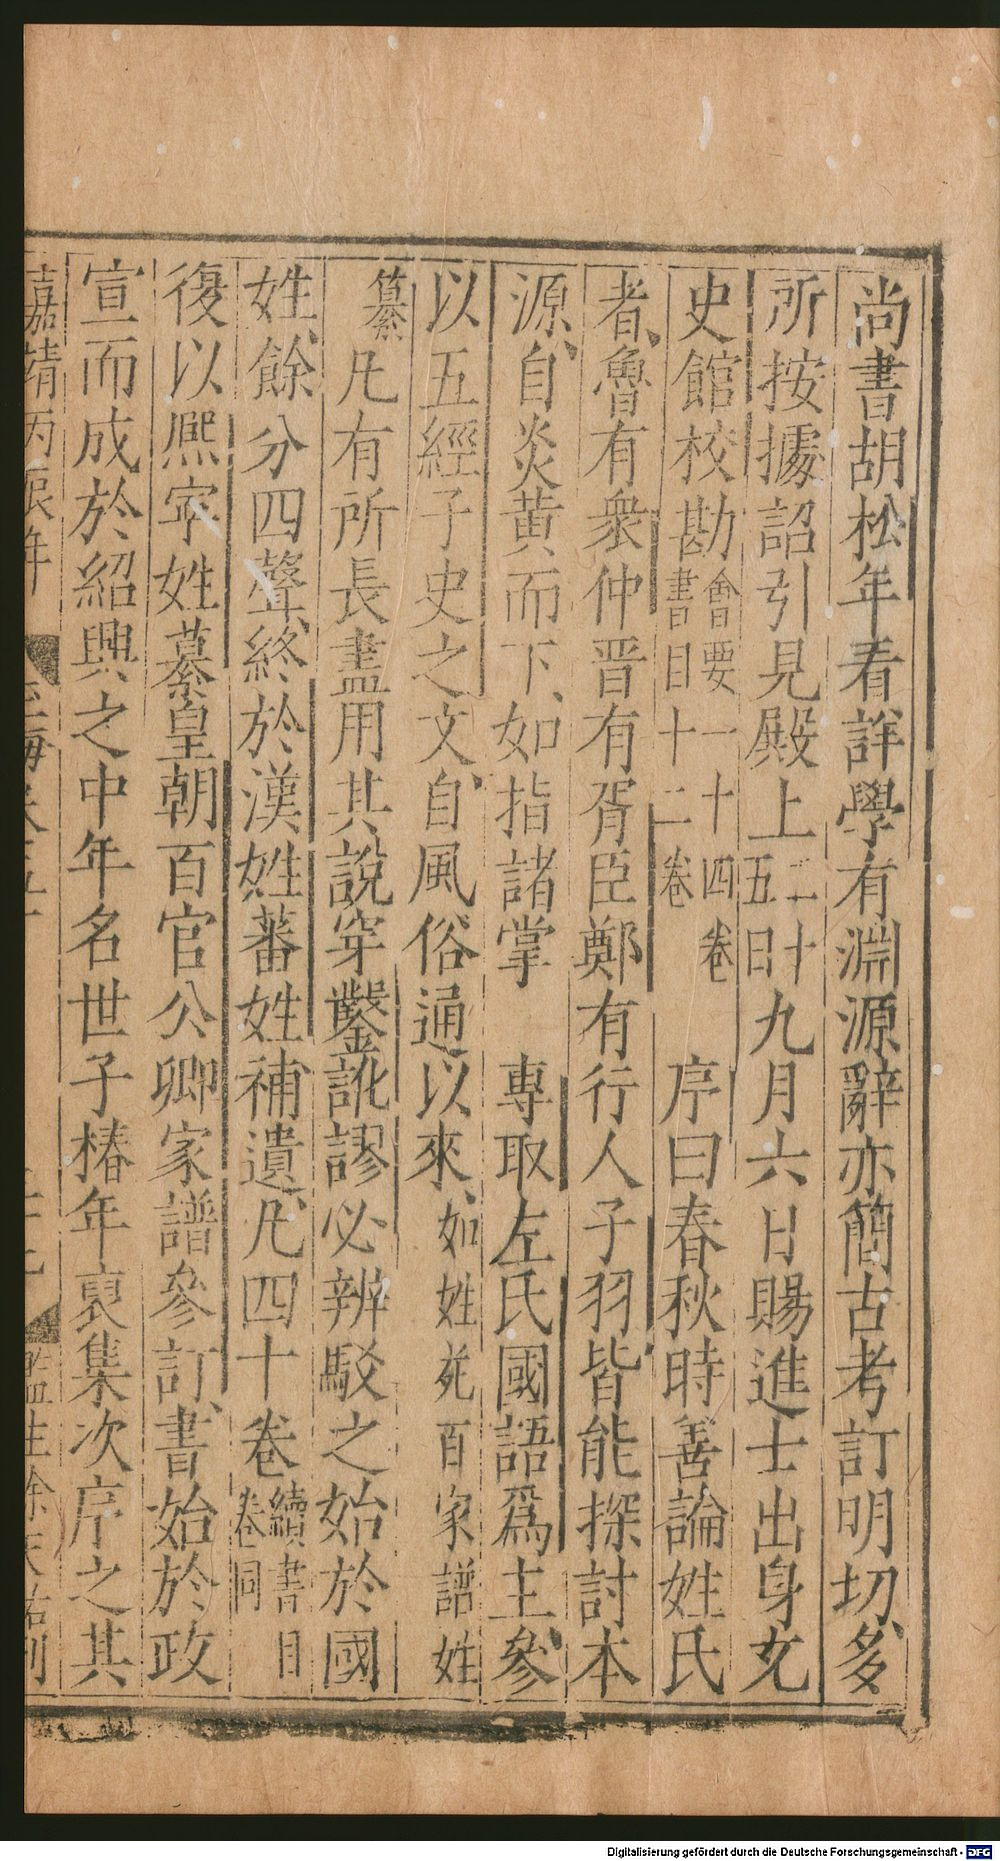 尚書胡松年看詳學有淵源辭亦簡古考訂明切多
所按據詔引見殿上二十五日九月六日賜進士出身充
史館校勘會要一十四卷書目十二卷序曰春秋時善論姓氏
者魯有衆仲晋有胥臣鄭有行人子羽皆能探討本
源自炎黃而下如指諸掌 專取左氏國語爲主參
以五經子史之文自風俗通以來如姓苑百家譜姓
纂凡有所長盡用其說穿鑿訛謬必辨駁之始於國
姓餘分四聲終於漢姓蕃姓補遺凡四十卷續書目卷同
復以熈寧姓纂皇朝百官公卿家譜參訂書始於政
宣而成於紹興之中年名世子椿年裒集次序之其
嘉靖丙辰年 玉海卷五十 監生徐天祐刊
Digitalisierung gefördert durch die Deutsche Forschungsgemeinschaft - DFG